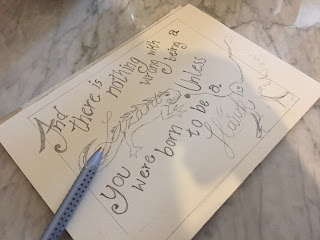 And there is nothing wrong with being a
Unless
You were born to be a
Hawk